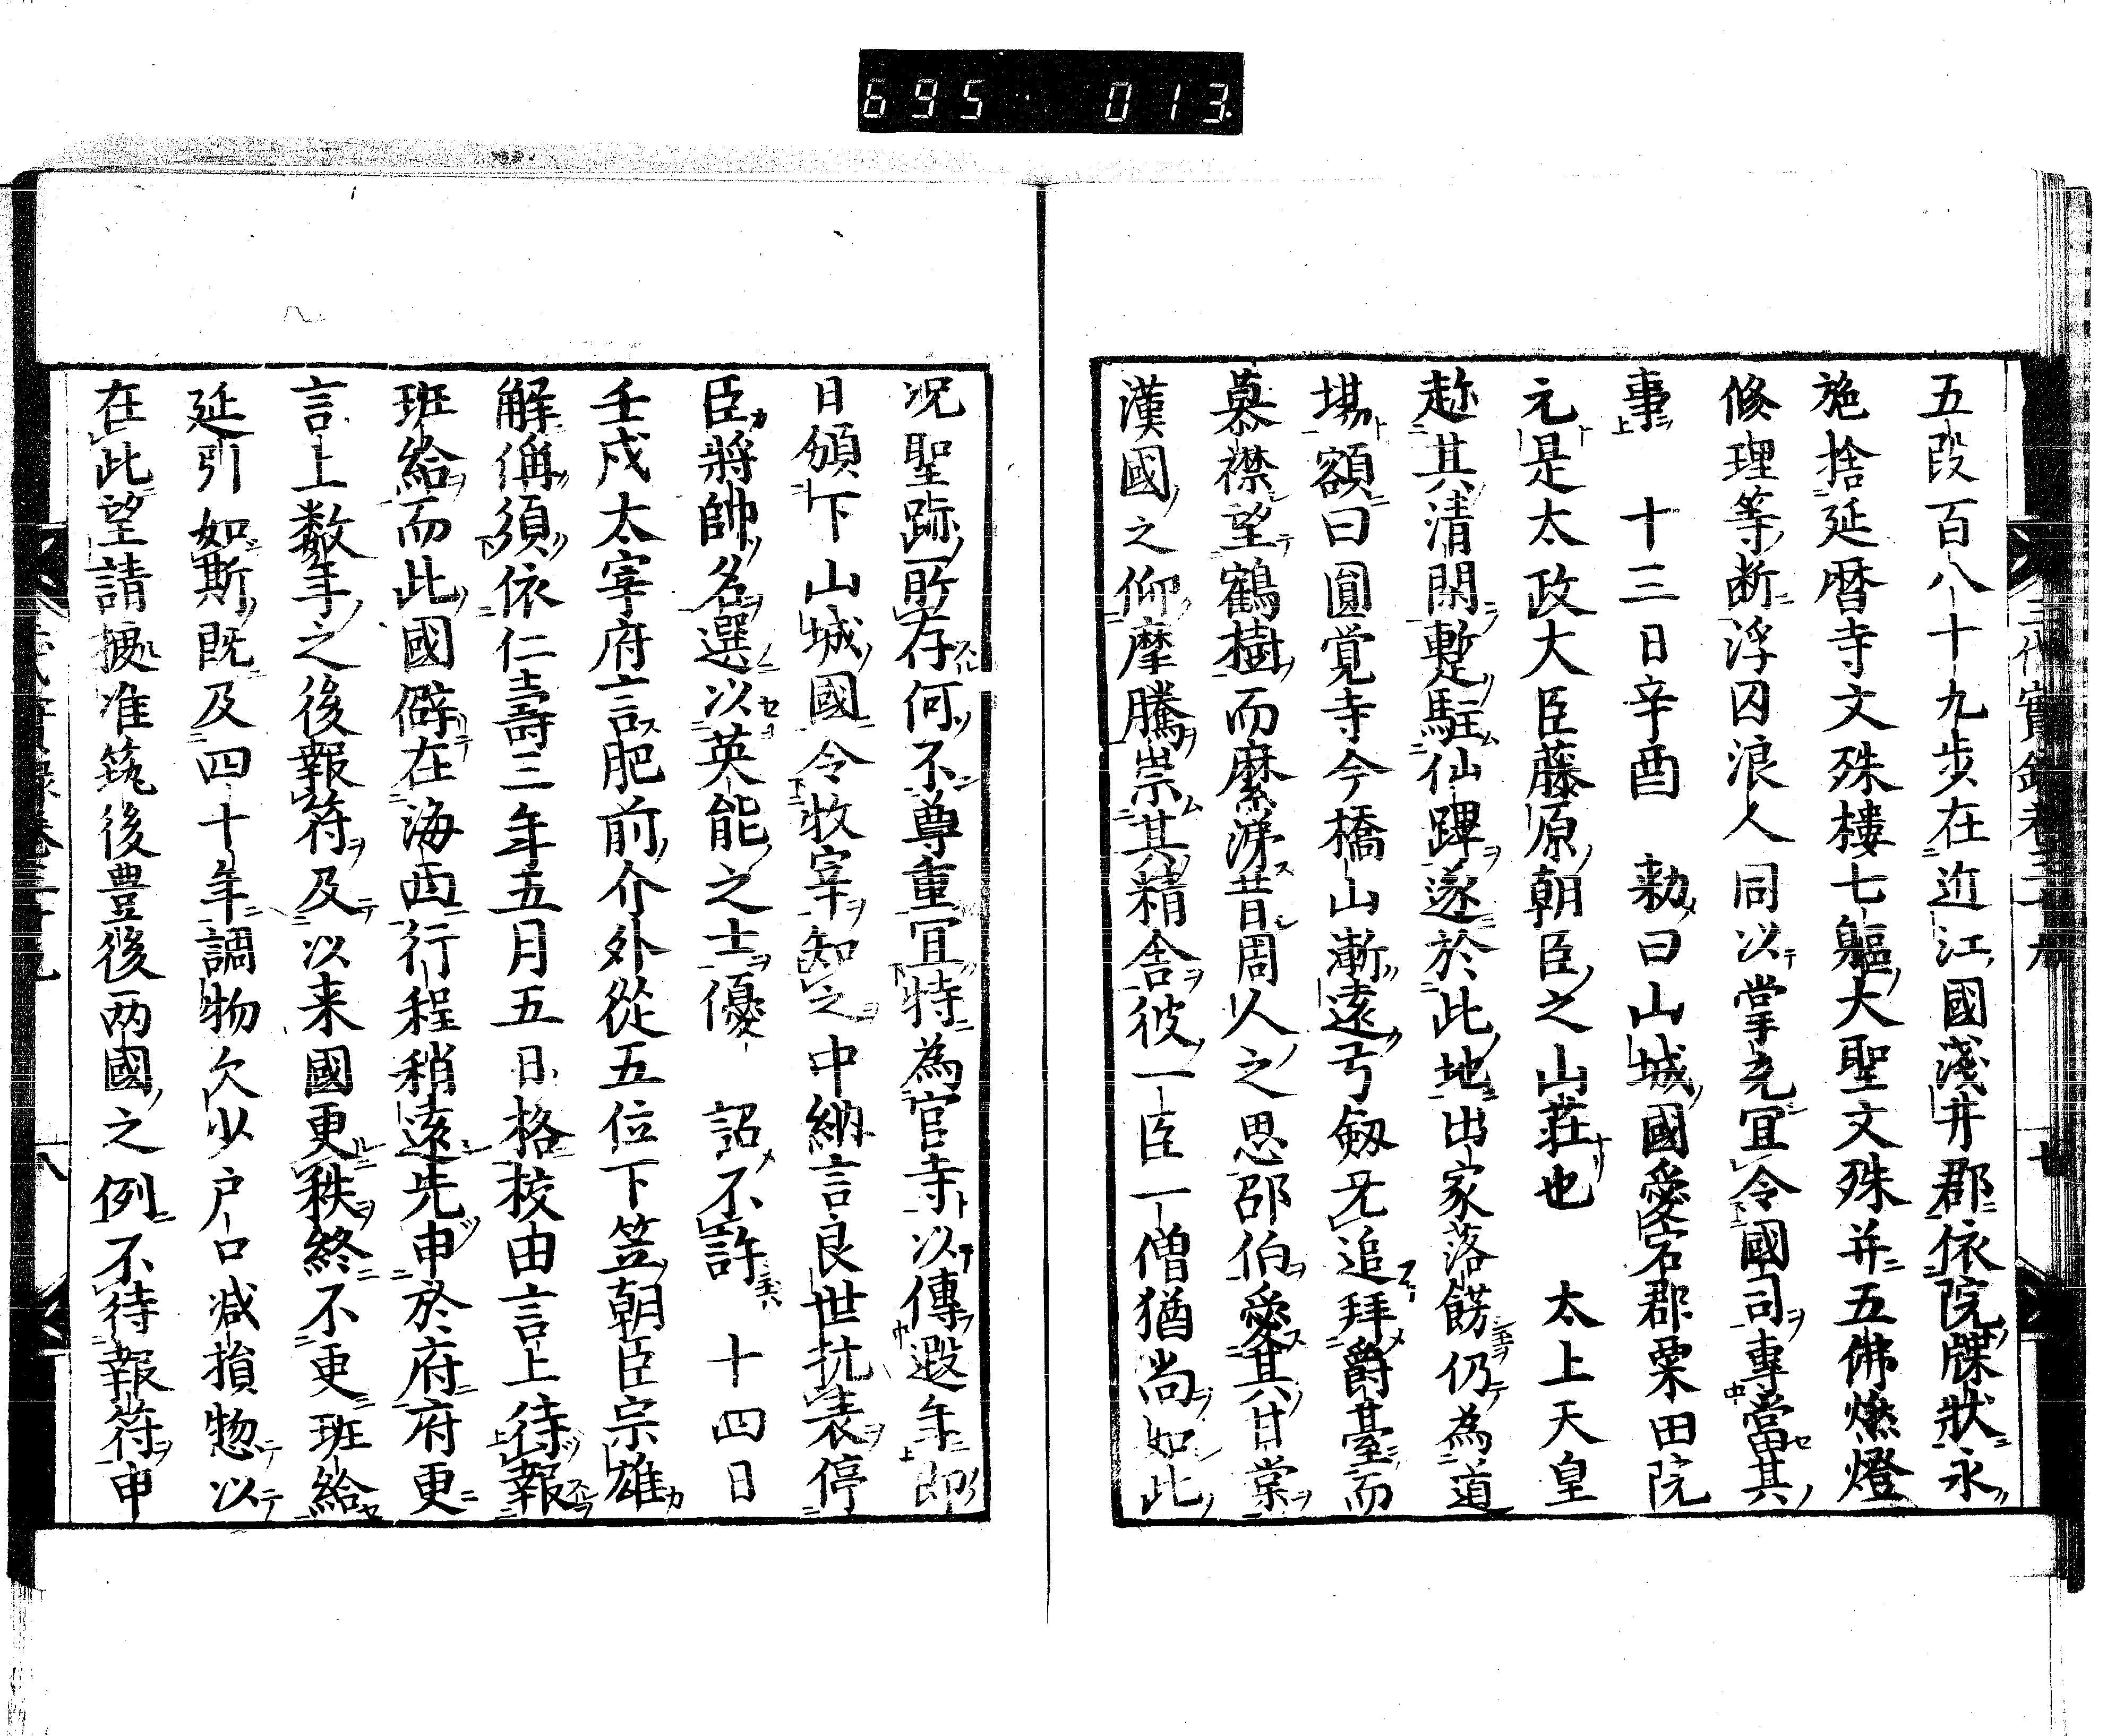 695 013
五段百八十九步在近江國淺井郡依院牒狀永
施捨延曆寺文殊樓七軀大聖文殊并五佛燃燈
修理等断浮囚浪人同以掌充冝令國司專當其
事 十三日辛酉 勑曰山城國愛宕郡粟田院
元是太政大臣藤原朝臣之山莊也 太上天皇
趂其清閑蹔駐仙蹕遂於此地出家落餝仍為道
場額曰圓覚寺今橋山漸遠弓劔旡追拜爵臺而
慕襟望鶴樹而縻涕昔周人之思邵伯愛其甘棠
漢國之仰摩騰崇其精舍彼一臣一僧猶尚如此
况聖跡㪽存何不尊重冝特為官寺以傳遐年即
日頒下山城國令牧宰知之 中納言良世抗表停
臣將帥名選以英能之士優 詔不許 十四日
壬戍太宰府言肥前介外從五位下笠朝臣宗雄
解偁須依仁壽三年五月五日格校由言上待報
班給而此國僻在海西行程稍遠先申於府府更
言上数年之後報符及以来國更秩終不更班給
延引如斯既及四十年調物欠少户口减損惣以
在此望請據准筑後豊後两國之例不待報符申